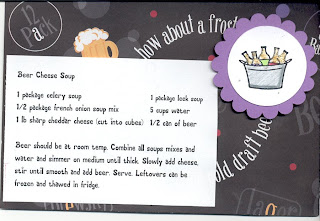 12
a
Pack
how about a frost
Beer Cheese Soup
1 package celery soup
1 package leek soup
1/2 package french onion soup mix
5 cups water
1 lb sharp cheddar cheese (cut into cubes)
1/2 can of beer
old draft bee
Beer should be at room temp. Combine all soups mixes
and water and simmer on medium until thick. Slowly add cheese,
stir until smooth and add beer. Serve. Leftovers can be
frozen and thawed in fridge.